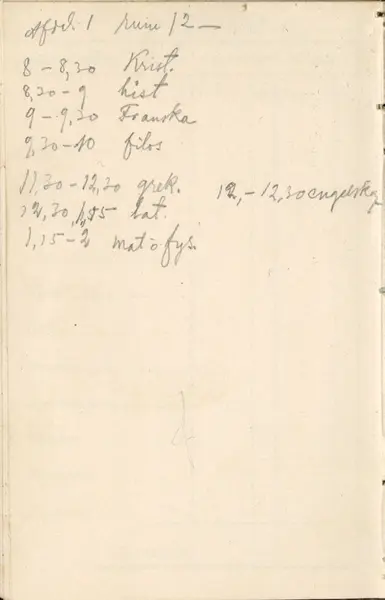 Afd. 1 rum 12 –
8 – 8,30 Krist.
8,30 – 9 hist
9 – 9,30 Franska
9,30 – 10 filos
11,30 – 12,30 grek. 12, – 12,30 engelska
12,30, 1,15 lat.
1,15 – 2 mat o fys.